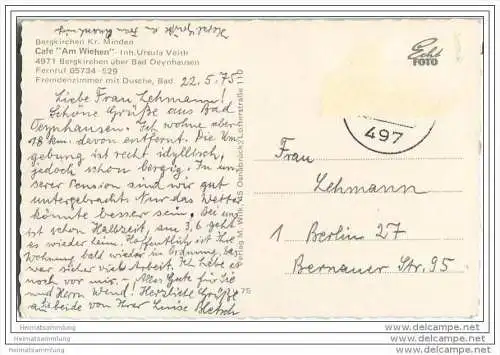 Bergkirchen Kr. Minden
Cafe "Am Wiehen" - Inh. Ursula Veith
4971 Bergkirchen über Bad Oeynhausen
Fernruf 05734-529
Fremdenzimmer mit Dusche, Bad
22.5.75
Liebe Frau Lehmann!
Schöne Grüße aus Bad
Oeynhausen. Ich wohne aber
18 km davon entfernt. Die Um
gebung ist recht idyllisch,
jedoch schon bergig. In un-
serer Pension sind wir gut
untergebracht. Nur das Wetter
könnte besser sein. Bei uns
ist schon Halbzeit, am 3,6 geht
es wieder heim. Hoffentlich ist Ihre
Wohnung bald wieder in Ordnung. Das
war sicher viel Arbeit. Ich habe es
noch vor mir. Alles Gute für Sie
und Herrn Wend! Herzliche Grüße
an beide von Ihrer Luise
Verlag M. Wilk, 45 Osnabrück, Lotterstraße 110
75
Echt
FOTO
497
Frau
Lehmann
1 Berlin 27
Bernauer Str. 95
Heimatsammlung
Heimatsammlung
Heimatsammlung
Heimatsammlung
www.delcampe.net